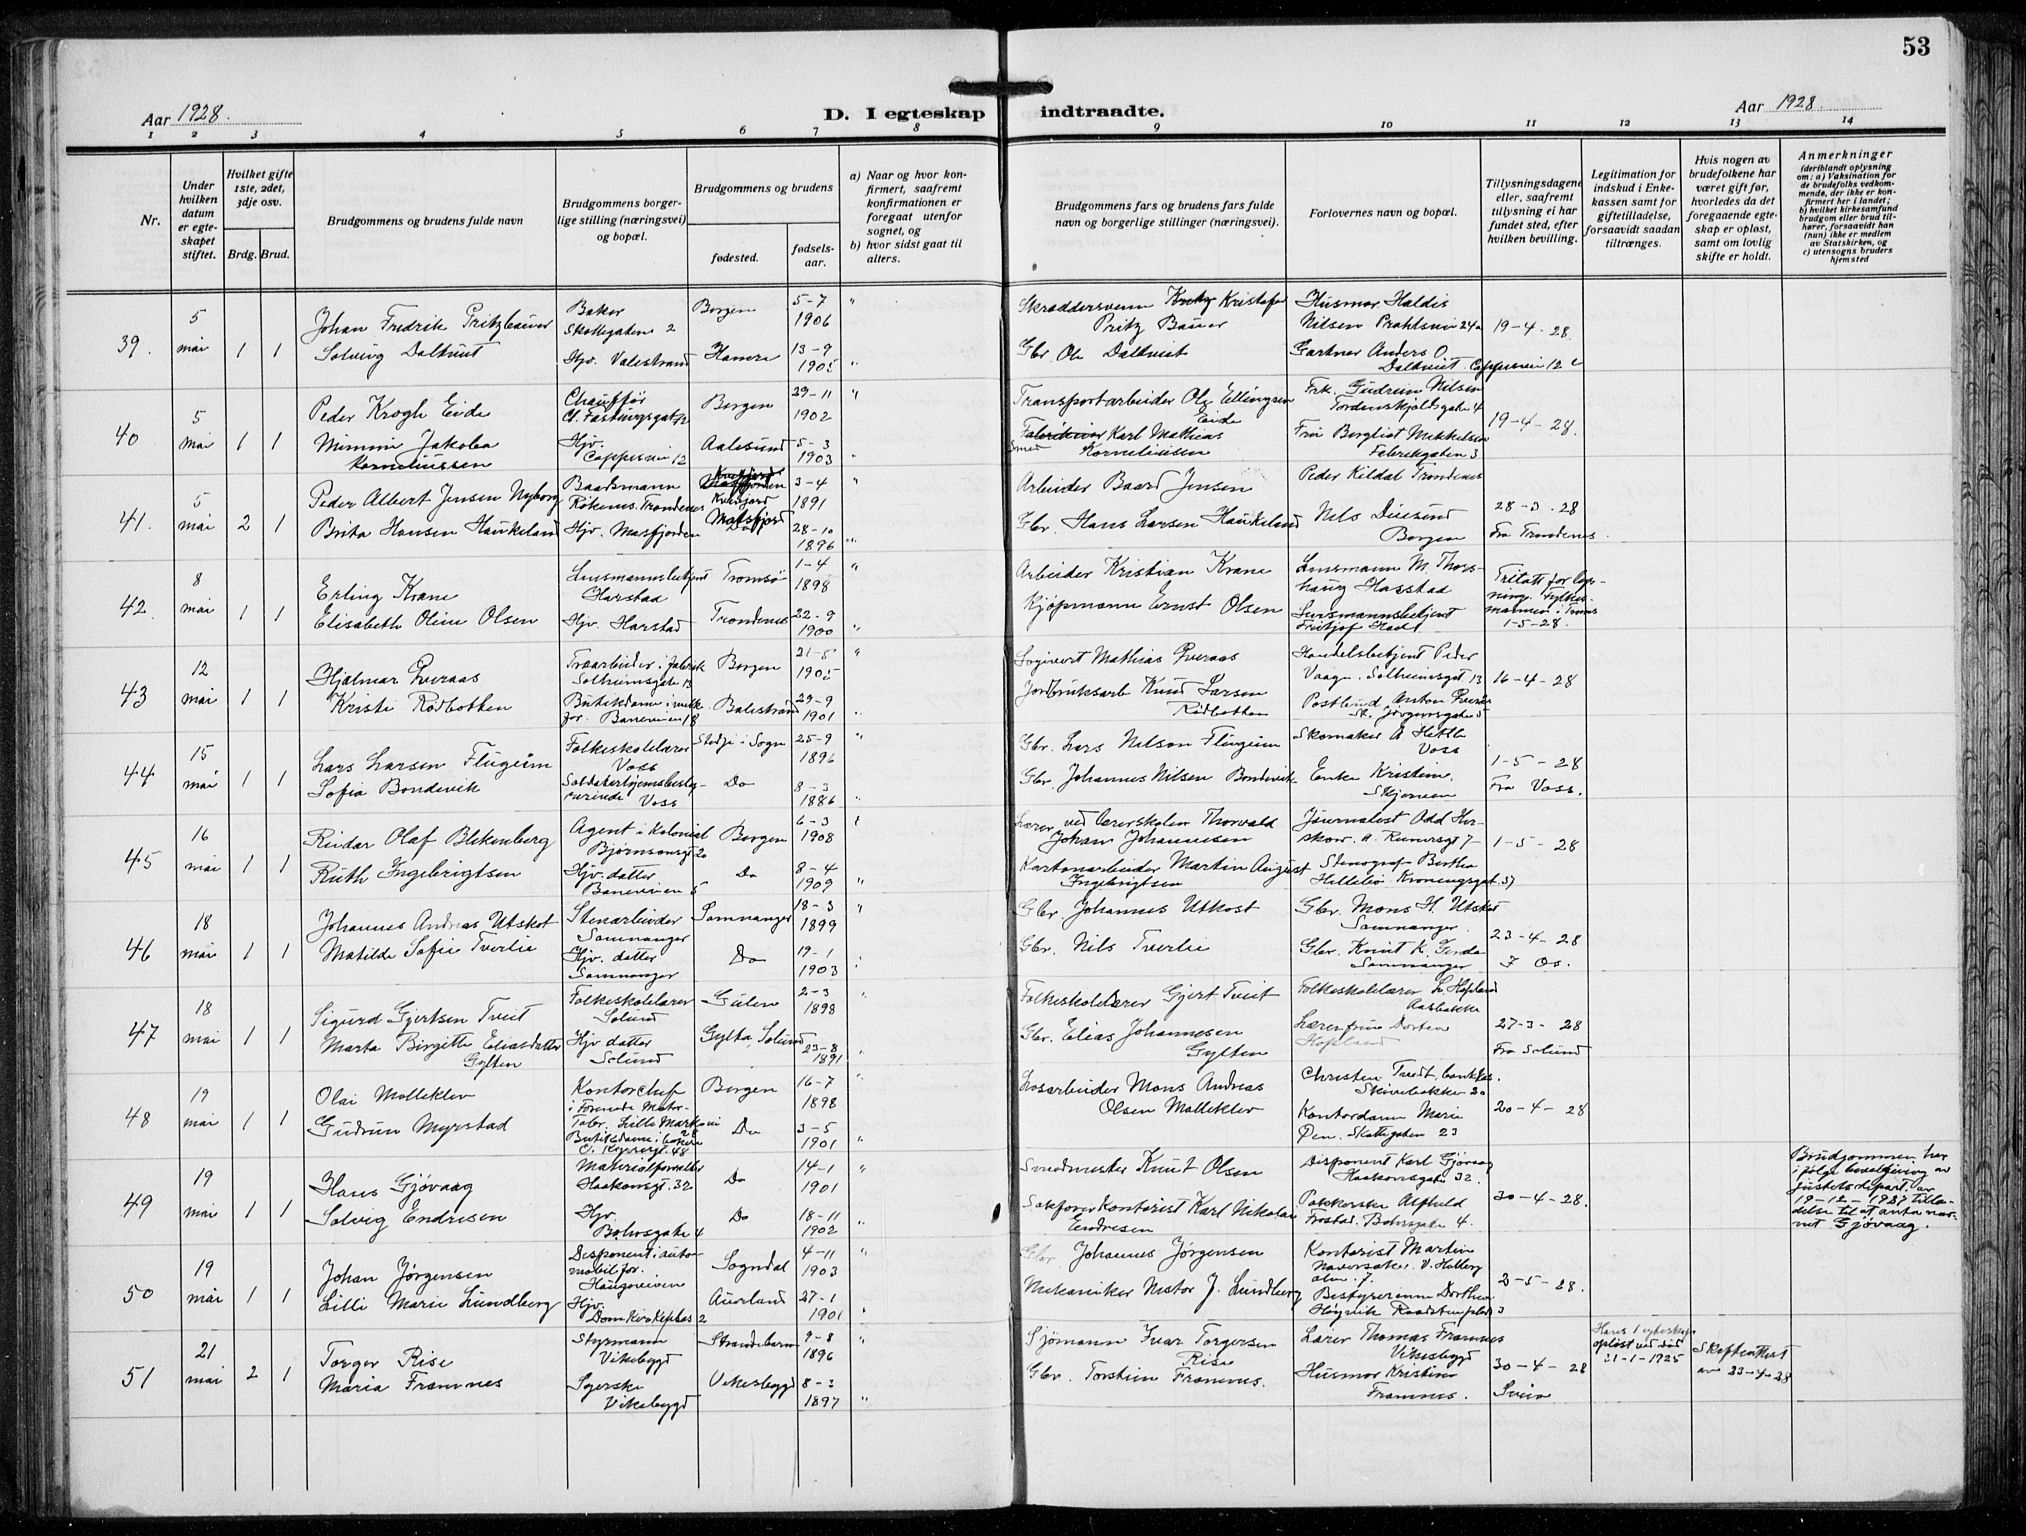 53
Aar 1928.
D. I egteskap indtraadte.
Aar 1928.
1 2 3 4 5 6 7 8 9 10 11 12 13 14
Nr.
Under hvilken datum er egteskapet stiftet.
Hvilket gifte 1ste, 2det, 3dje osv.
Brdg. Brud.
Brudgommens og brudens fulde navn
Brudgommens borgerlige stilling (næringsvei) og bopæl.
Brudgommens og brudens
fødested.
fødselsaar.
a) Naar og hvor konfirmert, saafremt konfirmationen er foregaat utenfor sognet, og
b) hvor sidst gaat til alters.
Brudgommens fars og brudens fars fulde navn og borgerlige stillinger (næringsvei).
Forlovernes navn og bopæl.
Tillysningsdagene eller, saafremt tillysning ei har fundet sted, efter hvilken bevilling.
Legitimation for indskud i Enkekassen samt for giftetilladelse, forsaavidt saadan tiltrænges.
Hvis nogen av brudefolkene har været gift før, hvorledes da det foregaaende egteskap er opløst, samt om lovlig skifte er holdt.
Anmerkninger
(deriblandt oplysning om: a) Vaksination for de brudefolks vedkommende, der ikke er konfirmert her i landet; b) hvilket kirkesamfund brudgom eller brud tilhører, forsaavidt han (hun) ikke er medlem av Statskirken, og c) utensogns bruders hjemsted
39. 5 mai 1 1
Johan Fredrik Pritzbauer Baker Skottegaten 2 Bergen 5-7 1906 "
Solveig Dalkvist Hjv. Valestrand Hamre 13-9 1905 "
Skræddersvenn Kristofer Pritz Bauer
Gbr. Ole Dalkvist
Husmor Haldis Nilsen Prahlsvei 24a
Gartner Anders O. Dalkvist. Cappesvei 12 c
19-4-28.
40 5 mai 1 1
Peder Krogh Eide Chauffør C. Fastingsgat 12 Bergen 29-11 1902 "
Mimmi Jakobea Korneliussen Hjv. Cappesvei 12 Aalesund 5-3 1903 "
Transportarbeider Ole Ellingsen Eide
Smed Karl Mathias Korneliusen
Frk. Gudrun Nilsen Tordenskjoldsgate 4
Frøi Bergliot Mikkelsen Fabrikgaten 3
19-4-28.
41. 5 mai 2 1
Peder Albert Jensen Nyborg Baadsmann Røkenes. Trondenes Kvæfjord 3-4 1891 "
Brita Hansen Haukeland Hjv. Masfjorden Masfjord 28-10 1896 "
Arbeider Baard Jensen
Gbr. Hans Larsen Haukeland
Peder Kildal Trondenes
Nils Duesund Bergen
28-3-28
Fra Trondenes.
42. 8 mai 1 1
Erling Krane Lensmannsbetjent Harstad Tromsø 1-4 1898 "
Elisabeth Oline Olsen Hjv. Harstad Trondenes 22-9 1900 "
Arbeider Kristian Krane
Kjøpmann Ernst Olsen
Lensmann M. Thorshaug Harstad
Lensmannsbetjent Fritjof Hadt
1-5-28.
43 12 mai 1 1
Hjalmar Kveraas Træarbeider i fabrik Solheimsgate 13 Bergen 21-5 1905 "
Kristi Rødbotten Butikdame i melkefor. Baneveien 18 Balestrand 29-9 1901 "
Logivert Mathias Kveraas
Jordbruksarb Knud Larsen Rødbotten
Handelsbetjent Peder Vaage. Solheimsgt 13
Postbud Anton Kveraas St. Jørgensgate 5
16-4-28
44 15 mai 1 1
Lars Larsen Flugeim Folkeskolelærer Voss Stedje i Sogn 25-9 1896 "
Sofia Bondevik Soldaterhjemsbestyrerinde Voss Do 8-3 1886 "
Gbr. Lars Nilsen Flugeim
Gbr. Johannes Nilsen Bondevik
Skomaker A Hetle Voss
Enke Kristine Skjerven
1-5-28
Fra Voss.
45 16 mai 1 1
Reidar Olaf Blekenberg Agent i Kolonial Bjørnsonsgt 20 Bergen 6-3 1908 "
Ruth Ingebrigtsen Hjv. datter Baneveien 5 Do 8-4 1909 "
Lærer ved Lærerskolen Thorvald Johan Johannesen
Kartonarbeider Martin August Ingebrigtsen
Journalist Odd Herskow. A. Reimersgt 7
Stenograf Bertha Hillebø Kroneengsgat 57
1-5-28
46 18 mai 1 1
Johannes Andreas Utskot Stenarbeider Samnanger Samnanger 18-3 1899 "
Matilde Sofie Tverlie Hjv. datter Samnanger Do 19-1 1903 "
Gbr. Johannes Utkost
Gbr. Nils Tverlie
Gbr. Mons H. Utskot Samnanger
Gbr. Knut K. Gerde Samnanger
23-4-28
I Os.
47 18 mai 1 1
Sigurd Gjertsen Tveit Folkeskolelærer Solund Gulen 2-3 1898 "
Marta Birgitte Eliasdatter Gylten Hjv datter Solund Gylta, Solund 23-8 1891 "
Folkeskolelærer Gjert Tveit
Gbr. Elias Johannesen Gylten
Folkeskolelærer L. Hopland Aasbakke
Lærerfrue Dortea Hopland
27-3-28
Fra Solund
48 19 mai 1 1
Olai Molleklev Kontorchef i Forenede Motorfabr. Lille Markvei 28 Bergen 16-7 1898 "
Gudrun Myrstad Butikdame i bakeri 48 Do 3-5 1901 "
Løsarbeider Mons Andreas Olsen Molleklev
Christen Tvedt, bankkas. Skivebakken 20
Kontordame Marie Øen. Skottegaten 23
20-4-28
49 19 mai 1 1
Hans Gjøvaag Materialforvalter Haakonsgt. 32 Do 14-1 1901 "
Solvig Endresen Hjv Bohrsgate 4 Do 18-11 1902
Smedmester Knut Olsen
Sakfører Kontorist Karl Nikolai Endresen
Disponent Karl Gjøvaag Haakonsgate 32.
Pakkerske Alfhild Frostad. Bohrsgate 4.
30-4-28.
Brudgommen har ifølge bevilgning av justisdepart. av 19-12-1927 tilladelse til at anta navnet Gjøvaag.
50 19 mai 1 1
Johan Jørgensen Disponent i automobilfor. Haugeveien Sogndal 4-11 1903 "
Lilli Marie Lundberg Hjv. Domkirkeplas 2 Aurland 27-1 1901 "
Gbr Johannes Jørgensen
Mekaniker Nestor J. Lundberg
Kontorist Martin Naversaker. V. Holbergsalm. 7.
Bestyrerinne Dorthea Høyvik Raadstuplads 3
2-5-28.
51 21 mai 2 1
Torger Rise Styrmann Vikebygd Strandebarm 9-8 1896 "
Maria Framnes Syerske Vikebygd Vikebygd 8-3 1897 "
Sjømann Ivar Torgersen Rise
Gbr. Torstein Framnes.
Lærer Thomas Framnes Vikebygd
Husmor Kristine Framnes.
30-4-28
Sveio
Hans 1 egteskap opløst ved død 31-1-1925
Skifteattest av 23-4-28